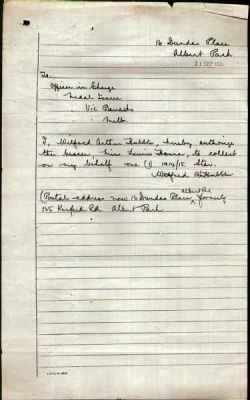 16 Dundas Place
Albert Park
21 SEP
To
Officer in Charge
Medal Issue
Vic Barracks
Melb.
I, Wilfred Arthur hereby authorise
the bearer, Miss to collect
on my behalf one (1) 1914/15 Star.
Wilfred
Albert Pk
(Postal address now 16 Dundas Place, formerly
135 Kerferd Rd Albert Park